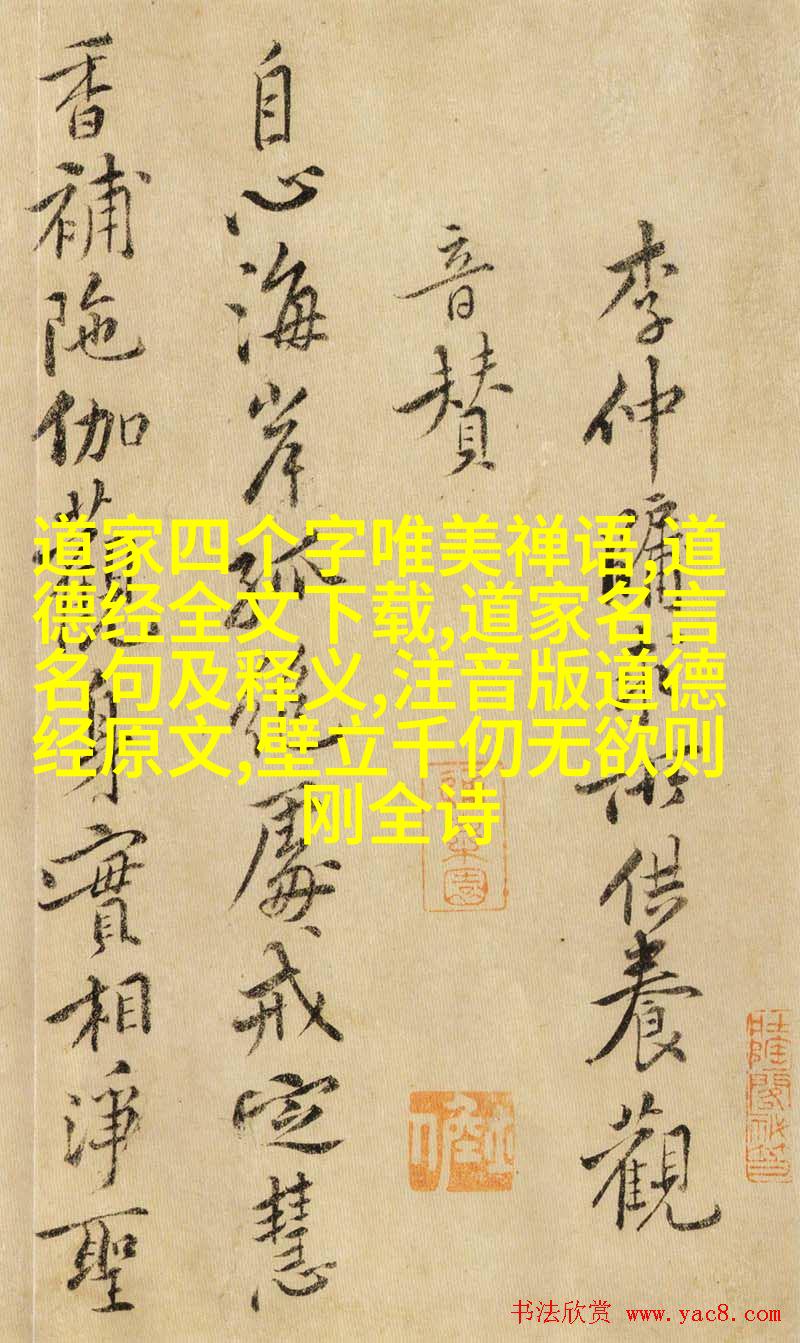 李仲牖供養觀
音賛
自心海岸孤絶處戒定慧
香補陁伽觀身實相淨聖
道家四个字唯美禅语,道
德经全文下载,道家名言
名句及释义,注音版道德
经原文,壁立千仞无欲则
刚全诗
书法欣赏 www.yac8.com